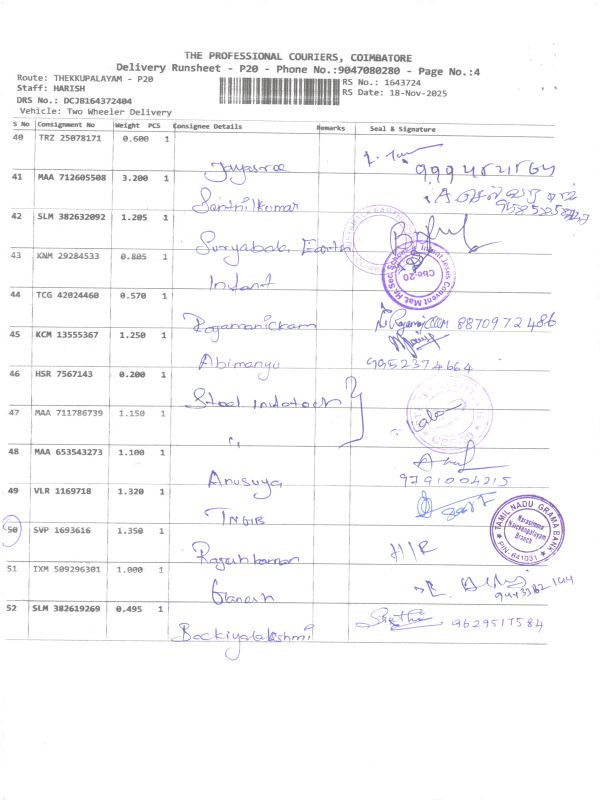 THE PROFESSIONAL COURIERS, COIMBATORE
Delivery Runsheet - P20 - Phone No.:9047080280 - Page No.:4
Route: THEKKUPALAYAM - P20
RS No.: 1643724
Staff: HARISH
RS Date: 18-Nov-2025
DRS No.: DCJB164372404
Vehicle: Two Wheeler Delivery
S No Consignment No Weight PCS Consignee Details Remarks Seal & Signature
40 TRZ 25078171 0.600 1
Jayasree
41 MAA 712605508 3.200 1
Senthilkumar
42 SLM 382632092 1.205 1
Suryabala Earth
43 KNM 29284533 0.805 1
Infant
Infant Jesus Convent Mat Hr Sec School
Cbe-20
44 TCG 42024460 0.570 1
Rajamanickam
8870972486
45 KCM 13555367 1.250 1
Abimanyu
9952374664
46 HSR 7567143 0.200 1
47 MAA 711786739 1.150 1
"
48 MAA 653543273 1.100 1
Anusuya
9791004215
49 VLR 1169718 1.320 1
TNGB
TAMIL NADU GRAMA BANK
Narasimma
Naickenpalayam
Branch
PIN-641031
50 SVP 1693616 1.350 1
Rajeshkumar
H/R
51 IXM 509296301 1.000 1
Ganesh
52 SLM 382619269 0.495 1
Backiyalakshmi
9629517584